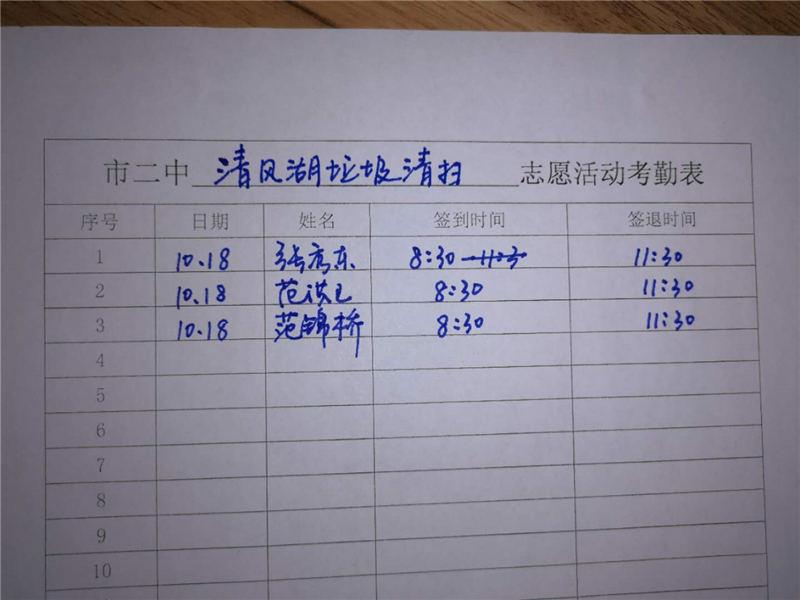 市二中 清风湖垃圾清扫 志愿活动考勤表
序号 日期 姓名 签到时间 签退时间
1 10.18 张秀东 8:30 11:30
2 10.18 范洪 8:30 11:30
3 10.18 范锦桥 8:30 11:30
4
5
6
7
8
9
10